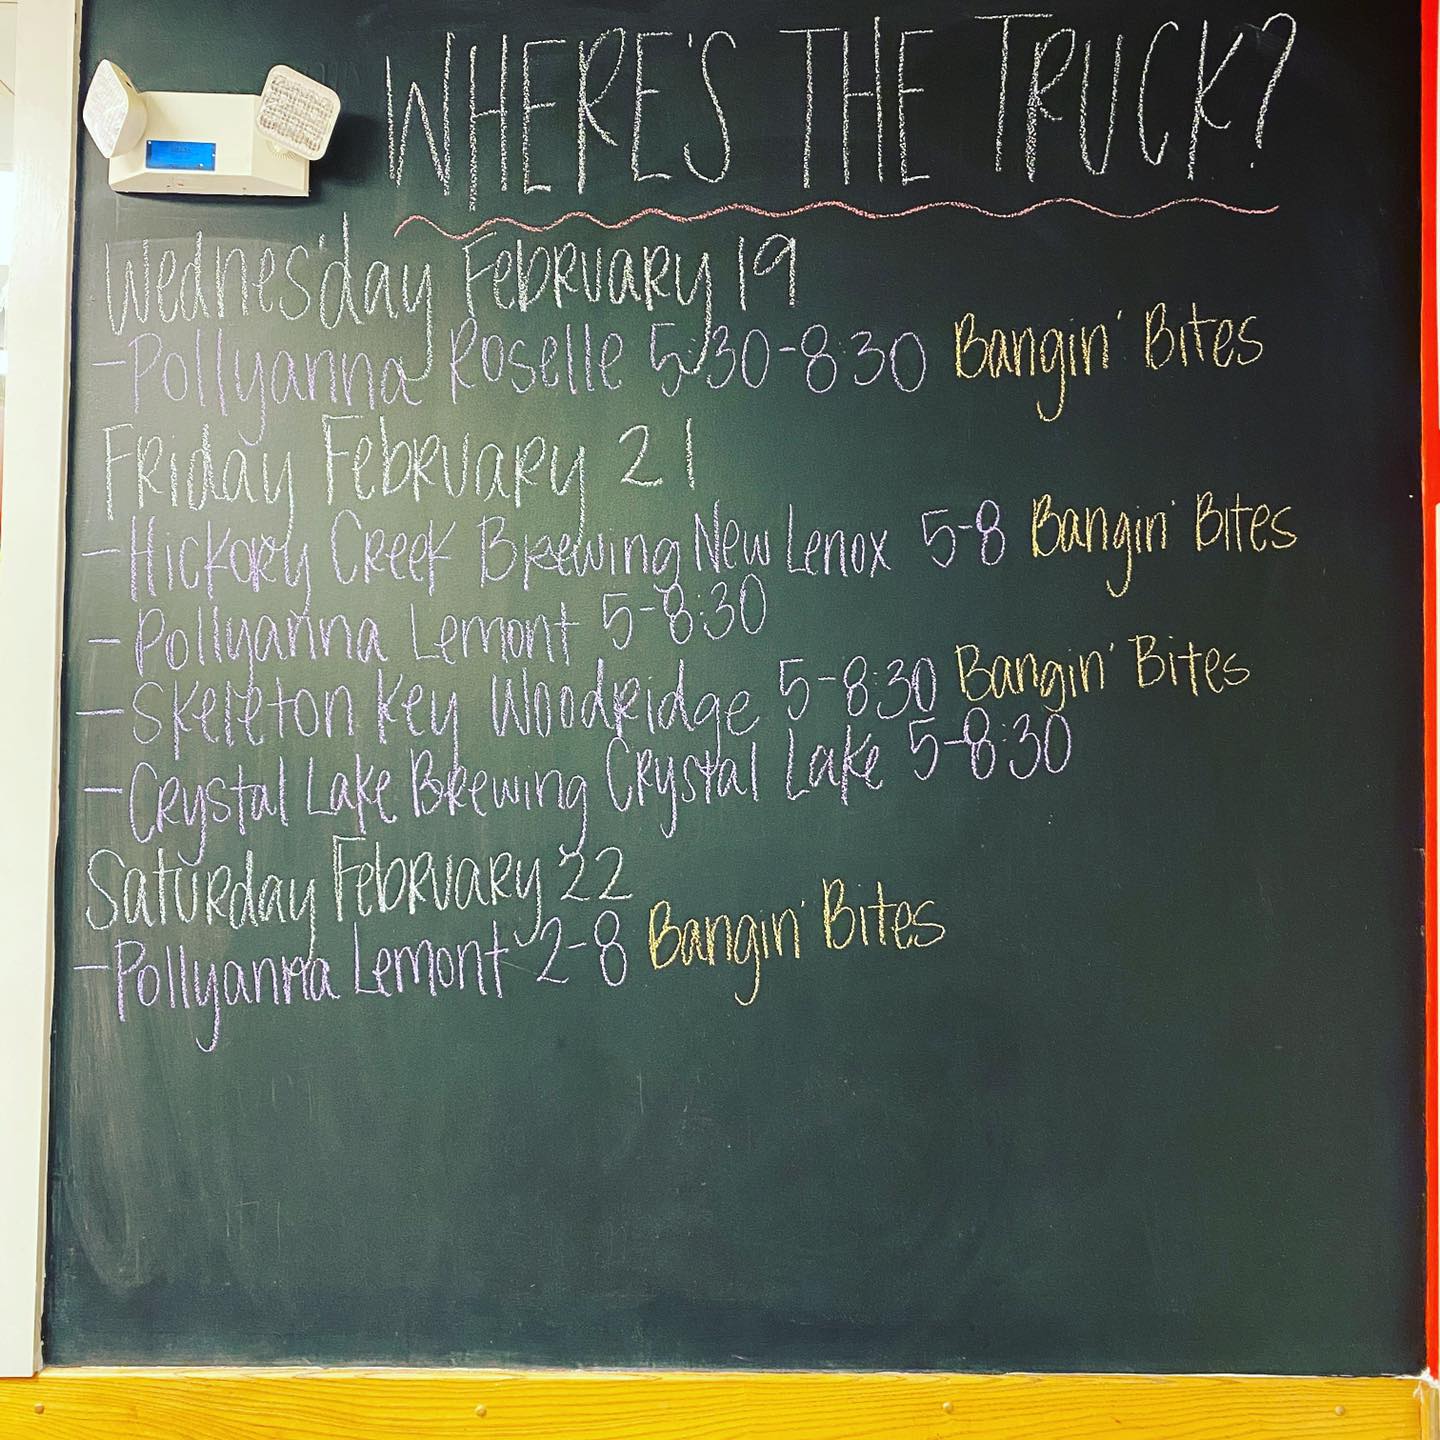 WHERE'S THE TRUCK?
Wednesday February 19
-Pollyanna Roselle 5:30-8:30 Bangin' Bites
Friday February 21
-Hickory Creek Brewing New Lenox 5-8 Bangin' Bites
-Pollyanna Lemont 5-8:30
-Skeleton Key Woodridge 5-8:30 Bangin' Bites
-Crystal Lake Brewing Crystal Lake 5-8:30
Saturday February 22
-Pollyanna Lemont 2-8 Bangin' Bites